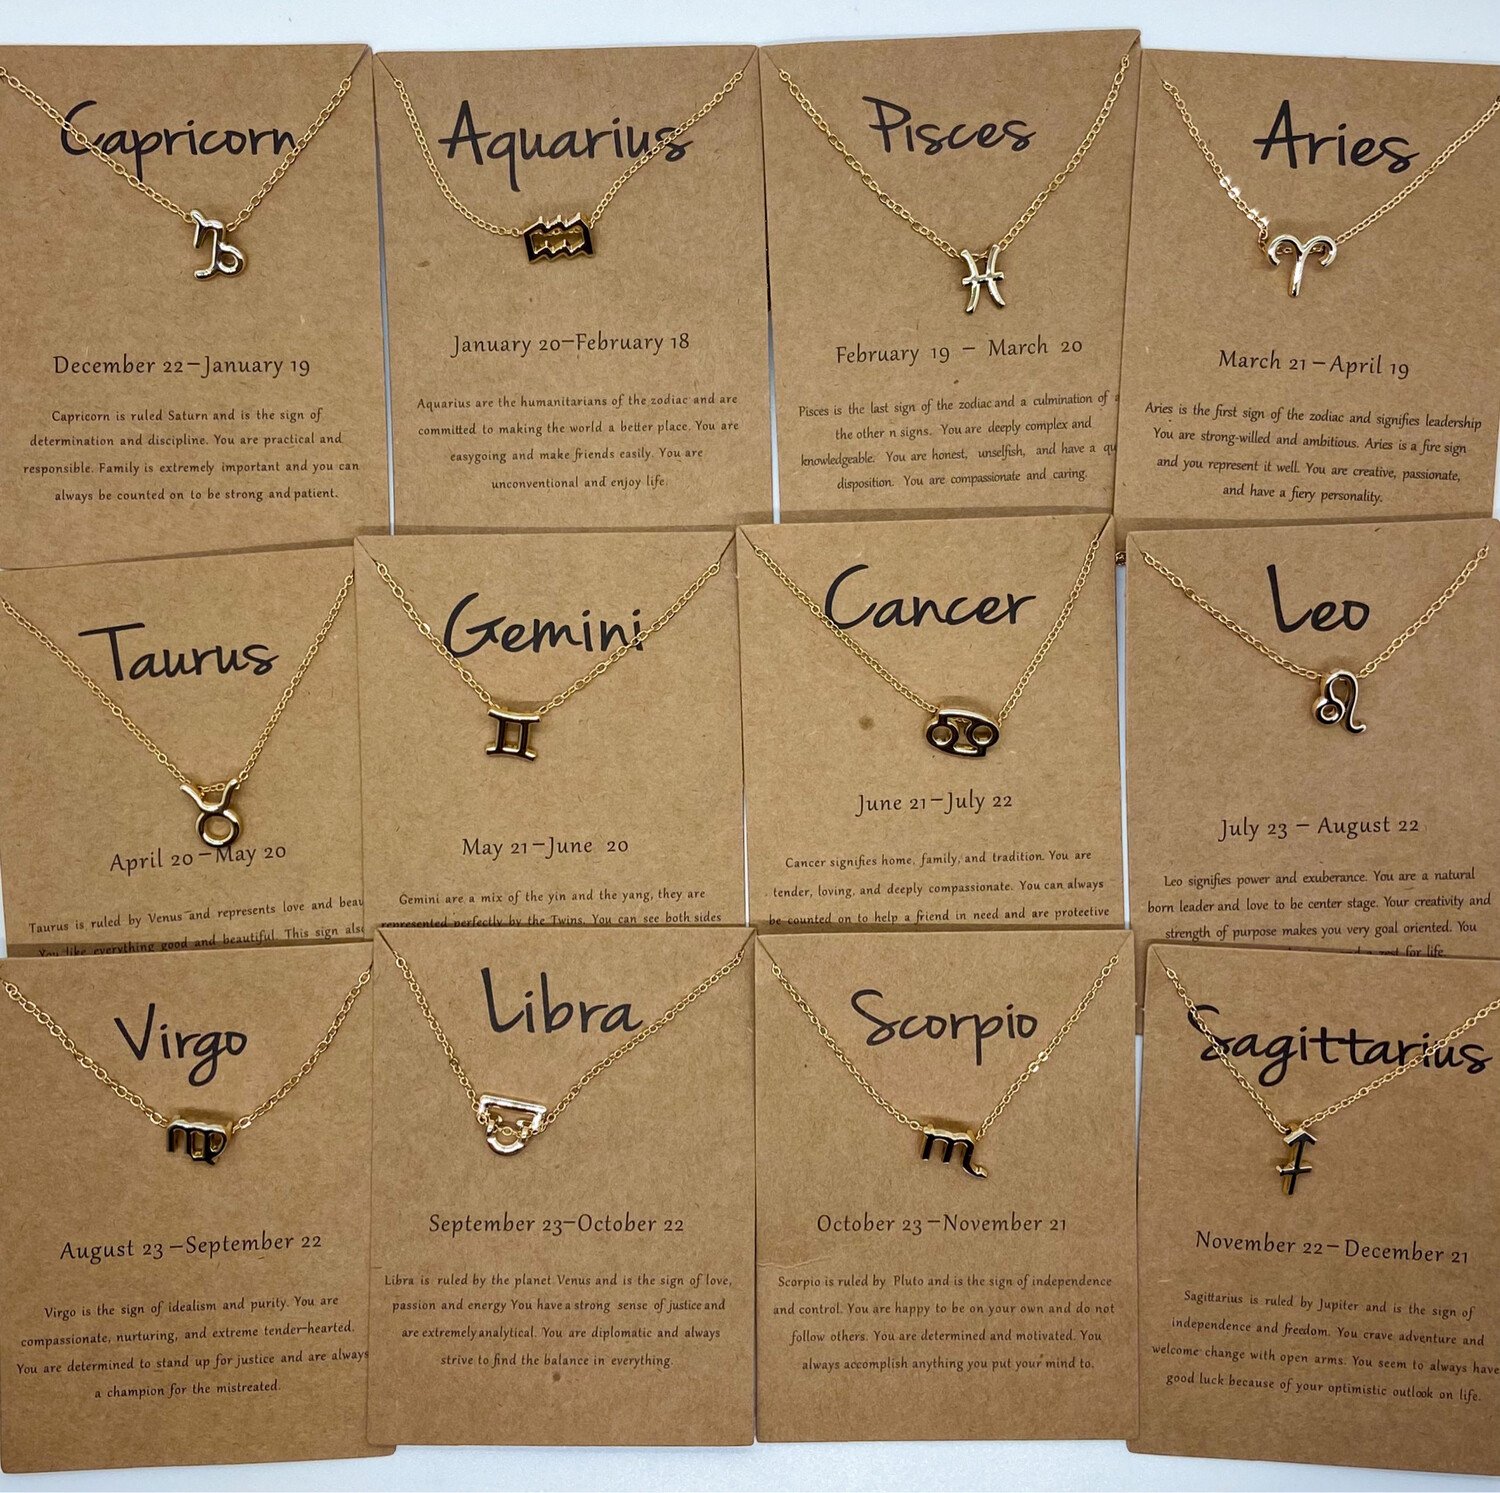 Capricorn
December 22–January 19
Capricorn is ruled Saturn and is the sign of
determination and discipline. You are practical and
responsible. Family is extremely important and you can
always be counted on to be strong and patient.
Aquarius
January 20–February 18
Aquarius are the humanitarians of the zodiac and are
committed to making the world a better place. You are
easygoing and make friends easily. You are
unconventional and enjoy life.
Pisces
February 19 – March 20
Pisces is the last sign of the zodiac and a culmination of
the other n signs. You are deeply complex and
knowledgeable. You are honest, unselfish, and have a
disposition. You are compassionate and caring.
Aries
March 21–April 19
Aries is the first sign of the zodiac and signifies leadership
You are strong-willed and ambitious. Aries is a fire sign
and you represent it well. You are creative, passionate,
and have a fiery personality.
Taurus
April 20–May 20
Taurus is ruled by Venus and represents love and
You like everything good and beautiful. This sign
Gemini
May 21–June 20
Gemini are a mix of the yin and the yang, they are
represented perfectly by the Twins. You can see both sides
Cancer
June 21–July 22
Cancer signifies home, family, and tradition. You are
tender, loving, and deeply compassionate. You can always
be counted on to help a friend in need and are protective
Leo
July 23 – August 22
Leo signifies power and exuberance. You are a natural
born leader and love to be center stage. Your creativity and
strength of purpose makes you very goal oriented. You
for life.
Virgo
August 23–September 22
Virgo is the sign of idealism and purity. You are
compassionate, nurturing, and extreme tender-hearted.
You are determined to stand up for justice and are always
a champion for the mistreated.
Libra
September 23–October 22
Libra is ruled by the planet Venus and is the sign of love,
passion and energy You have a strong sense of justice and
are extremely analytical. You are diplomatic and always
strive to find the balance in everything.
Scorpio
October 23–November 21
Scorpio is ruled by Pluto and is the sign of independence
and control. You are happy to be on your own and do not
follow others. You are determined and motivated. You
always accomplish anything you put your mind to.
Sagittarius
November 22–December 21
Sagittarius is ruled by Jupiter and is the sign of
independence and freedom. You crave adventure and
welcome change with open arms. You seem to always have
good luck because of your optimistic outlook on life.